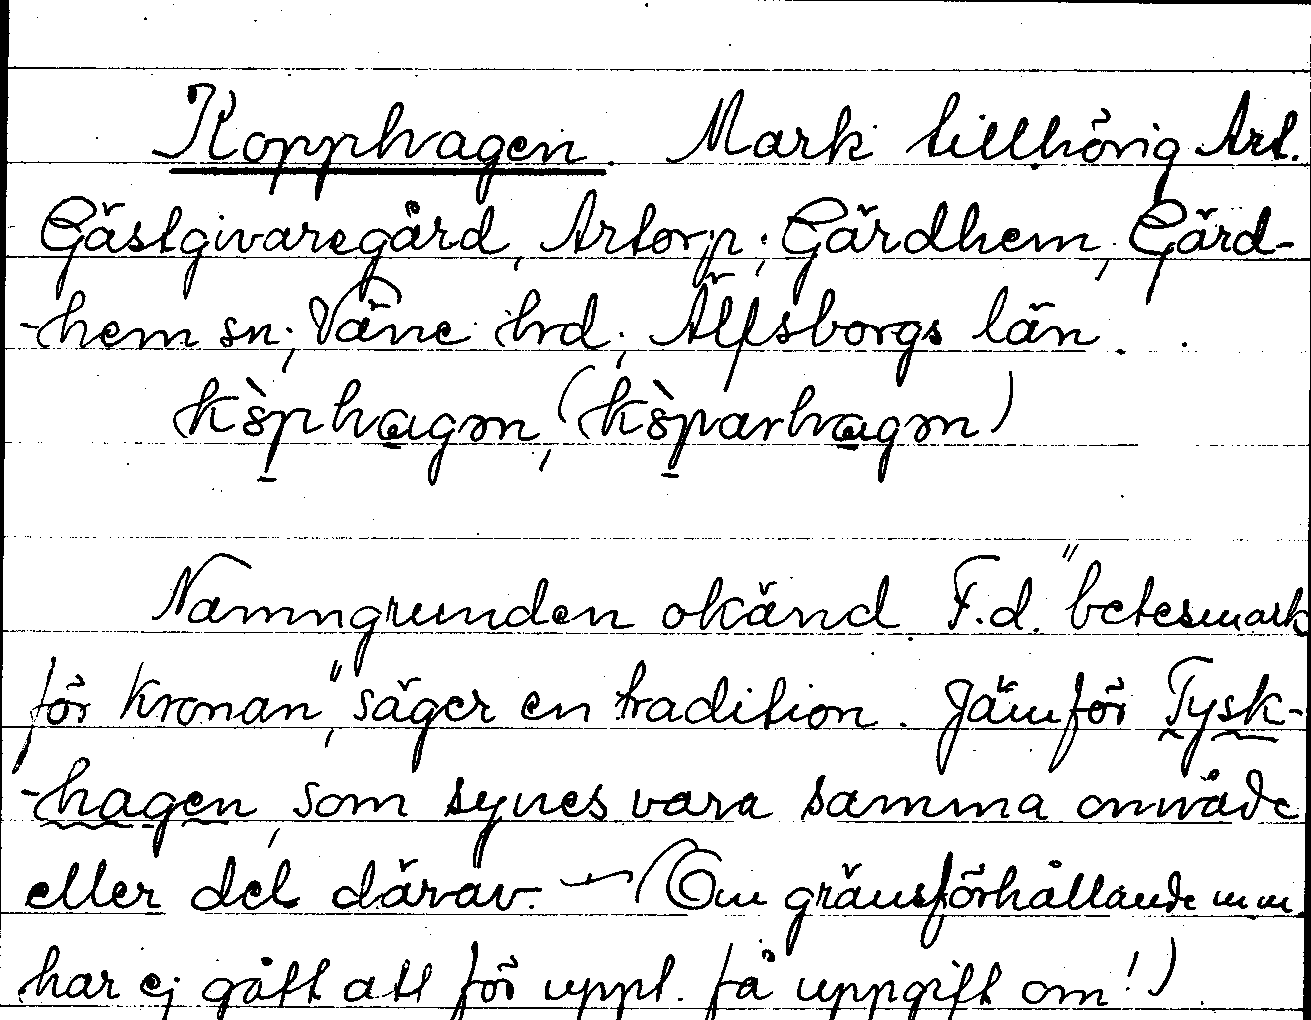 Kopphagen. Mark tillhörig Art.
Gästgivaregård, Artorp; Gärdhem, Gärd-
-hem sn; Väne hrd; Älfsborgs län.
kòphagən, (kòparhagən)
Namngrunden okänd. F.d. "betesmark
för Kronan", säger en tradition. Jämför Tysk-
-hagen, som synes vara samma område
eller del därav. — (Om gränsförhållande m m.
har ej gått att för uppt. få uppgift om!)